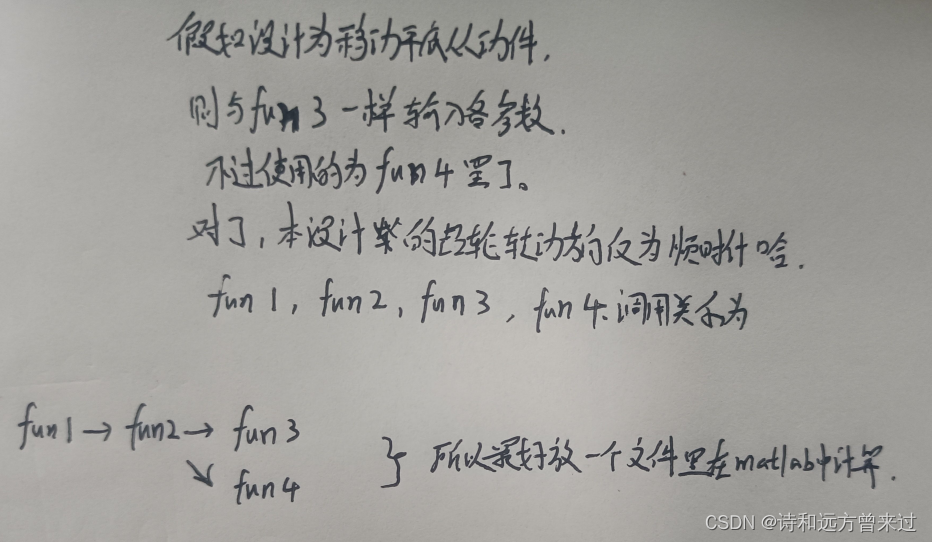 假如设计为移动平底从动件,
则与fun3一样输入各参数.
不过使用的为fun4罢了。
对了,本设计案的凸轮转动方向仅为顺时针哈.
fun1, fun2, fun3, fun4.调用关系为
fun1→fun2→fun3
↘fun4
}所以最好放一个文件里在matlab中计算.
CSDN @诗和远方曾来过